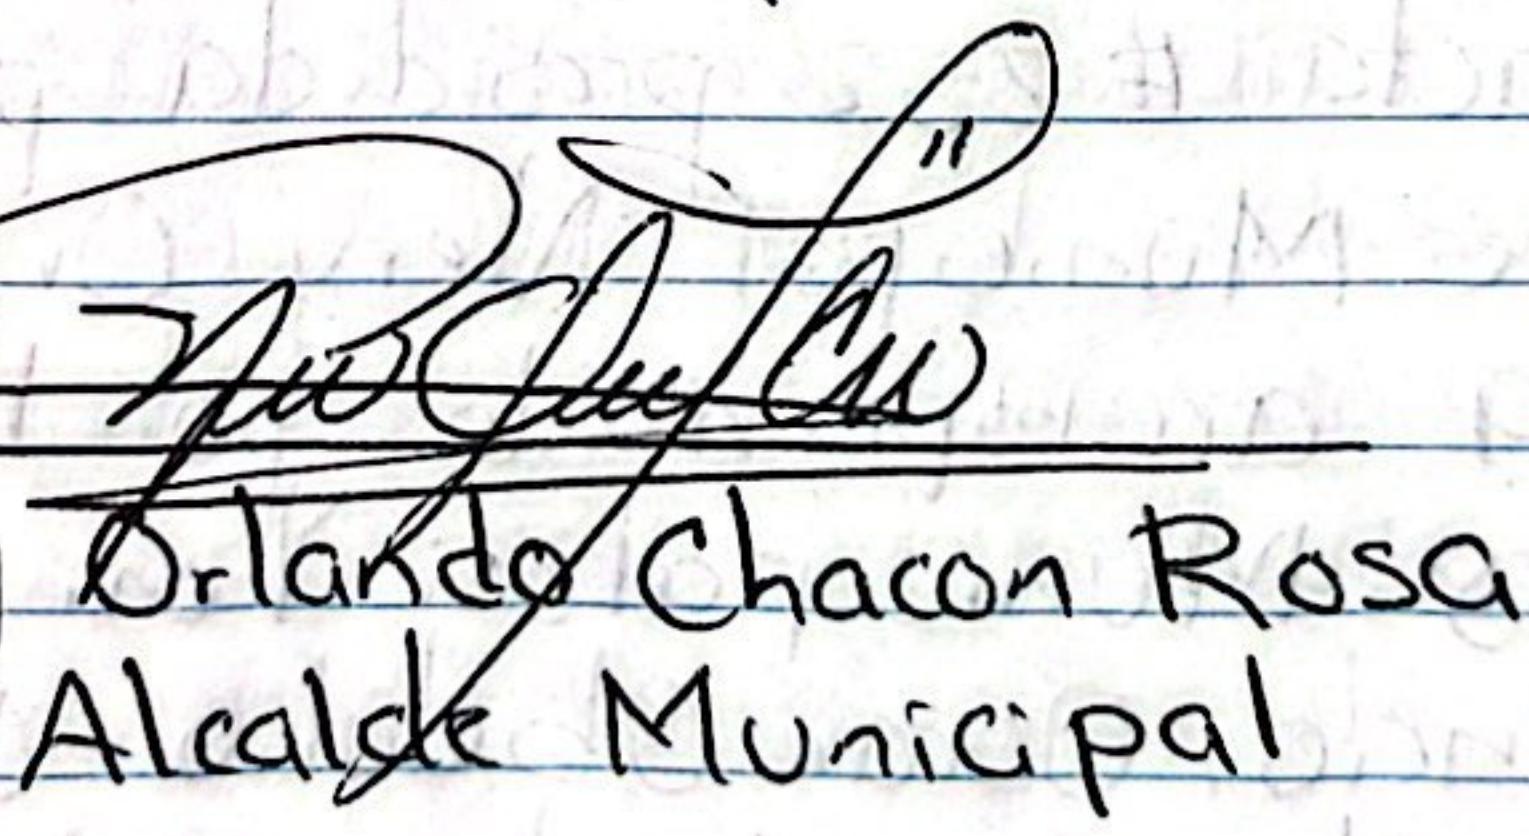 Orlando Chacon Rosa
Alcalde Municipal